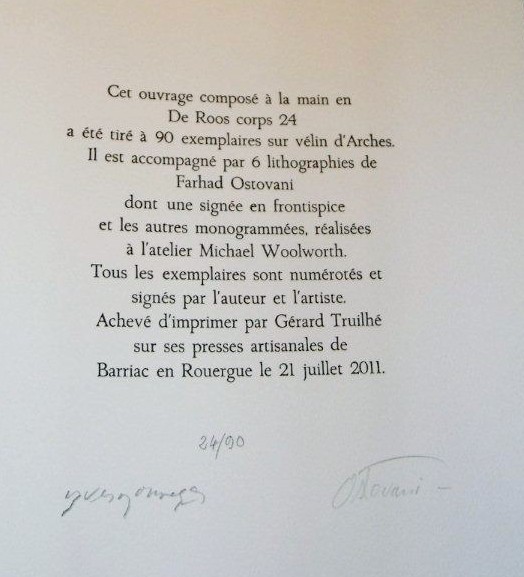 Cet ouvrage composé à la main en
De Roos corps 24
a été tiré à 90 exemplaires sur vélin d'Arches.
Il est accompagné par 6 lithographies de
Farhad Ostovani
dont une signée en frontispice
et les autres monogrammées, réalisées
à l'atelier Michael Woolworth.
Tous les exemplaires sont numérotés et
signés par l'auteur et l'artiste.
Achevé d'imprimer par Gérard Truilhé
sur ses presses artisanales de
Barriac en Rouergue le 21 juillet 2011.
24/90
Ostovani